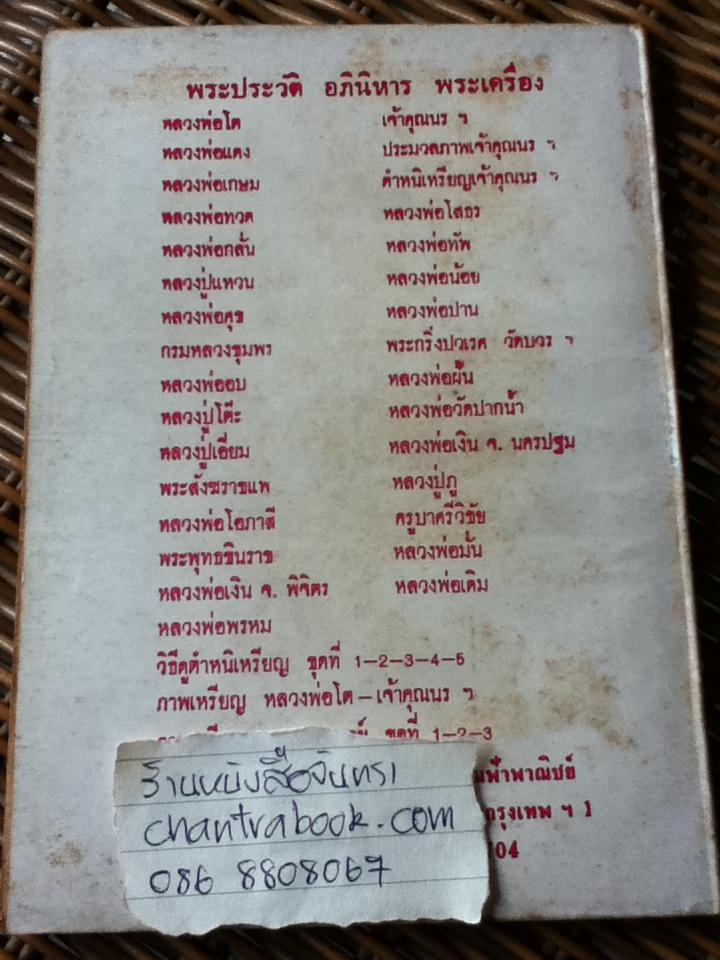 พระประวัติ อภินิหาร พระเครื่อง
หลวงพ่อโต เจ้าคุณนร ฯ
หลวงพ่อแดง ประมวลภาพเจ้าคุณนร ฯ
หลวงพ่อเกษม ตำหนิเหรียญเจ้าคุณนร ฯ
หลวงพ่อทวด หลวงพ่อโสธร
หลวงพ่อกลั่น หลวงพ่อทัพ
หลวงปู่แหวน หลวงพ่อน้อย
หลวงพ่อศุข หลวงพ่อปาน
กรมหลวงชุมพร พระกริ่งปวเรศ วัดบวร ฯ
หลวงพ่ออบ หลวงพ่อผั้น
หลวงปู่โต๊ะ หลวงพ่อวัดปากน้ำ
หลวงปู่เอี่ยม หลวงพ่อเงิน จ. นครปฐม
พระสังฆราชแพ หลวงปู่ภู
หลวงพ่อโอภาสี ครูบาศรีวิชัย
พระพุทธชินราช หลวงพ่อมั่น
หลวงพ่อเงิน จ. พิจิตร หลวงพ่อเดิม
หลวงพ่อพรหม
วิธีดูตำหนิเหรียญ ชุดที่ 1-2-3-4-5
ภาพเหรียญ หลวงพ่อโต - เจ้าคุณนร ฯ
ชุดที่ 1-2-3
ฟ้าพาณิชย์
กรุงเทพ ฯ 1
04
ร้านหนังสือจันทรา
chantrabook.com
086 8808067